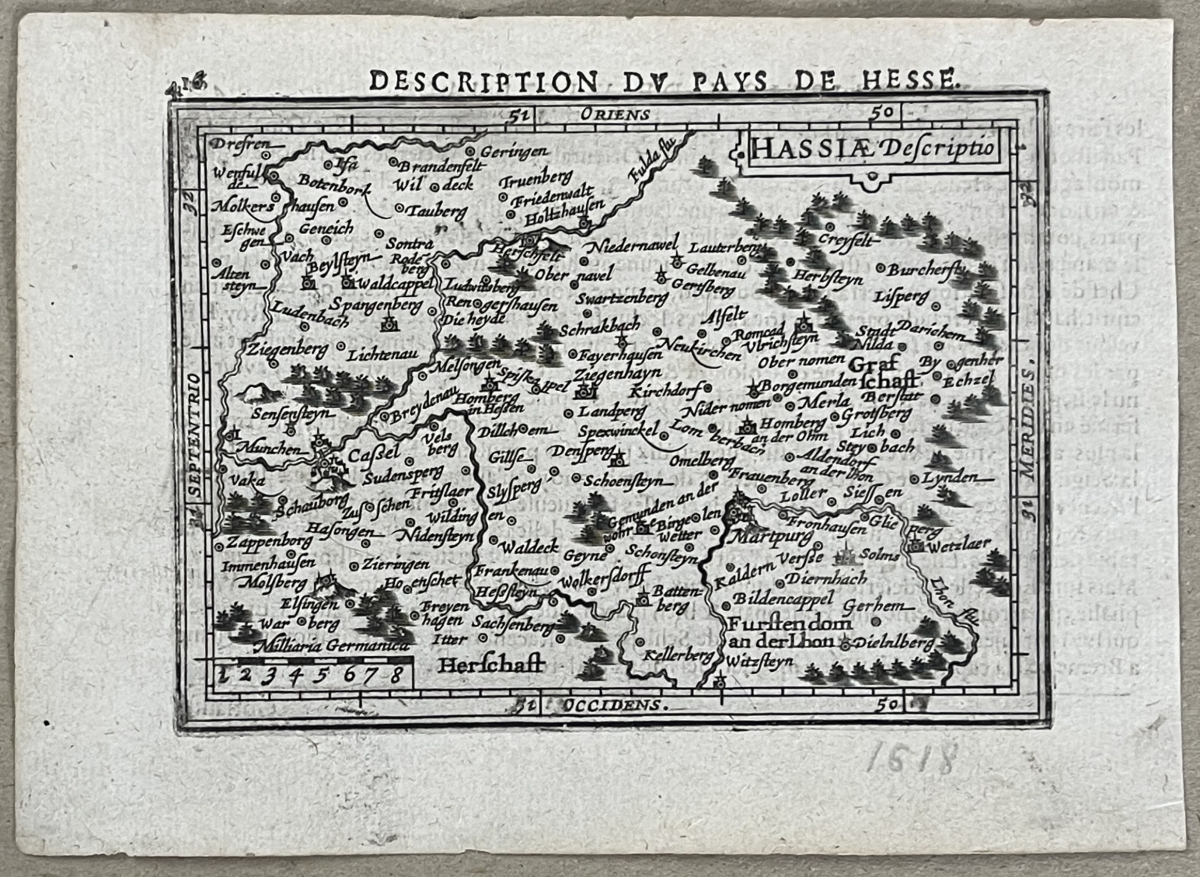 416
DESCRIPTION DV PAYS DE HESSE.
51 ORIENS 50
HASSIÆ Descriptio
Dresren
Geringen
Ifa
Brandenfelt
Fulda flu
Botenbork
Wil deck
Truenberg
Friedenwalt
Holtzhausen
Molkers hausen
Tauberg
32
32
Eschwe gen
Geneich
Sontra
Herschfelt
Niedernawel
Lauterberg
Creyfelt
Vach
Beylsteyn
Rode berg
Alten steyn
Waldcappel
Ludwitsberg
Ober navel
Gelbenau
Gersberg
Herbsteyn
Burchersts
Spangenberg
Ren gershausen
Swartzenberg
Lisperg
Ludenbach
Die heyde
Schrakbach
Alfelt
Romrad
Ulrichsteyn
Stadt
Darichem
Nilda
Ziegenberg
Lichtenau
Fayerhausen
Neukirchen
Ober nomen
Graf schaft
By genher
Melsongen
Spiskapel
Ziegenhayn
Echzel
Kirchdorf
Borgemunden
Berstat
Breydenau
Homberg
in Hessen
Landperg
Nider nomen
Merla
Grotsberg
Sensensteyn
Dillchoem
Spexwinckel
Lom berbach
Homberg
an der Ohm
Lich
Munchen
Vels berg
Stey bach
Caßel
Gillse
Densperg
Omelberg
Aldendorf
an der lhon
Vaka
Sudensperg
Slysperg
Schoensteyn
Frauenberg
Lynden
SEPTENTRIO
MERIDIES.
Schauborg
Zus schen
Fritslaer
Gemunden an der
wohr
Loller
Siessen
31
31
Hasongen
Wilding en
Birge len
Wetter
Fronhausen
Glie perg
Zappenborg
Nidensteyn
Waldeck
Martpurg
Wetzlaer
Geyne
Schonsteyn
Versse
Solms
Immenhausen
Zieringen
Frankenau
Wolkersdorff
Kaldern
Molsberg
Diernbach
Heßsteyn
Batten-
berg
Bildencappel
Gerhem
Lhon flu
Elsingen
Freyen
hagen
Sachsenberg
War berg
Furstendom
an der Lhon
Itter
Dielnlberg
Milliaria Germanica
Herschaft
Kellerberg
Witzsteyn
1 2 3 4 5 6 7 8
51 OCCIDENS. 50
1618